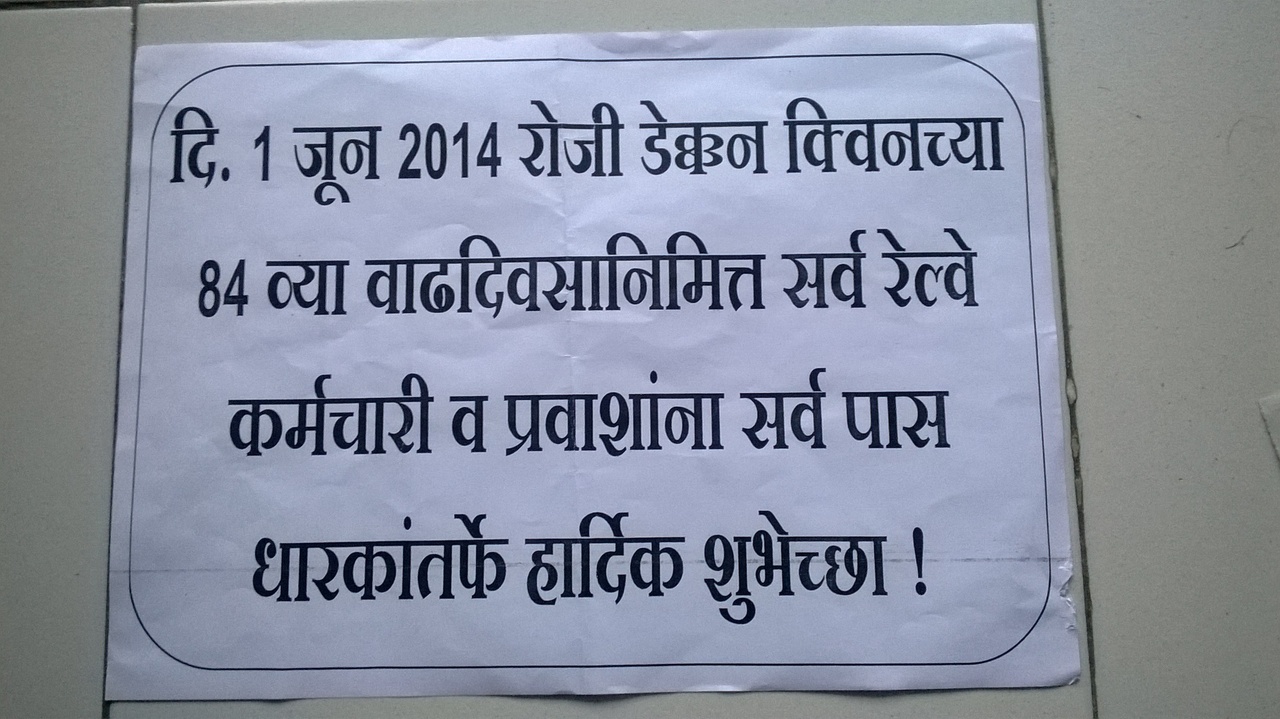 दि. 1 जून 2014 रोजी डेक्कन क्विनच्या
84 व्या वाढदिवसानिमित्त सर्व रेल्वे
कर्मचारी व प्रवाशांना सर्व पास
धारकांतर्फे हार्दिक शुभेच्छा !